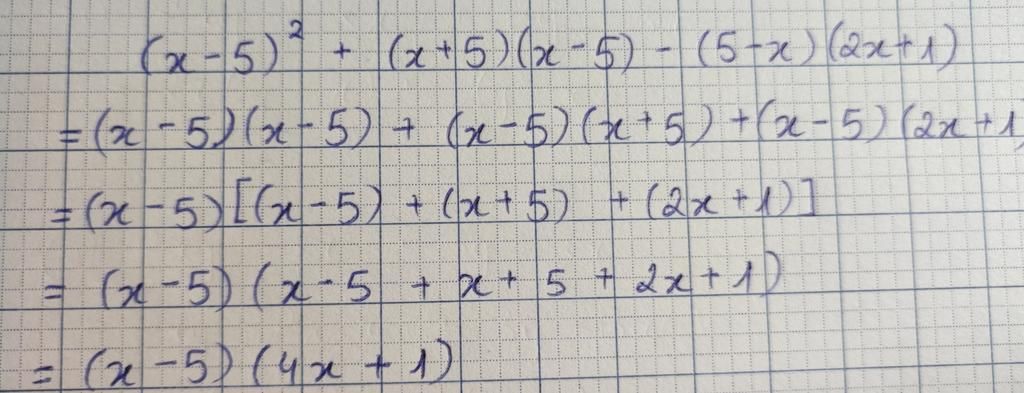 (x-5)² + (x+5)(x-5) - (5-x)(2x+1)
= (x-5)(x-5) + (x-5)(x+5) + (x-5)(2x+1)
= (x-5)[(x-5) + (x+5) + (2x+1)]
= (x-5)(x-5 + x+5 + 2x+1)
= (x-5)(4x+1)